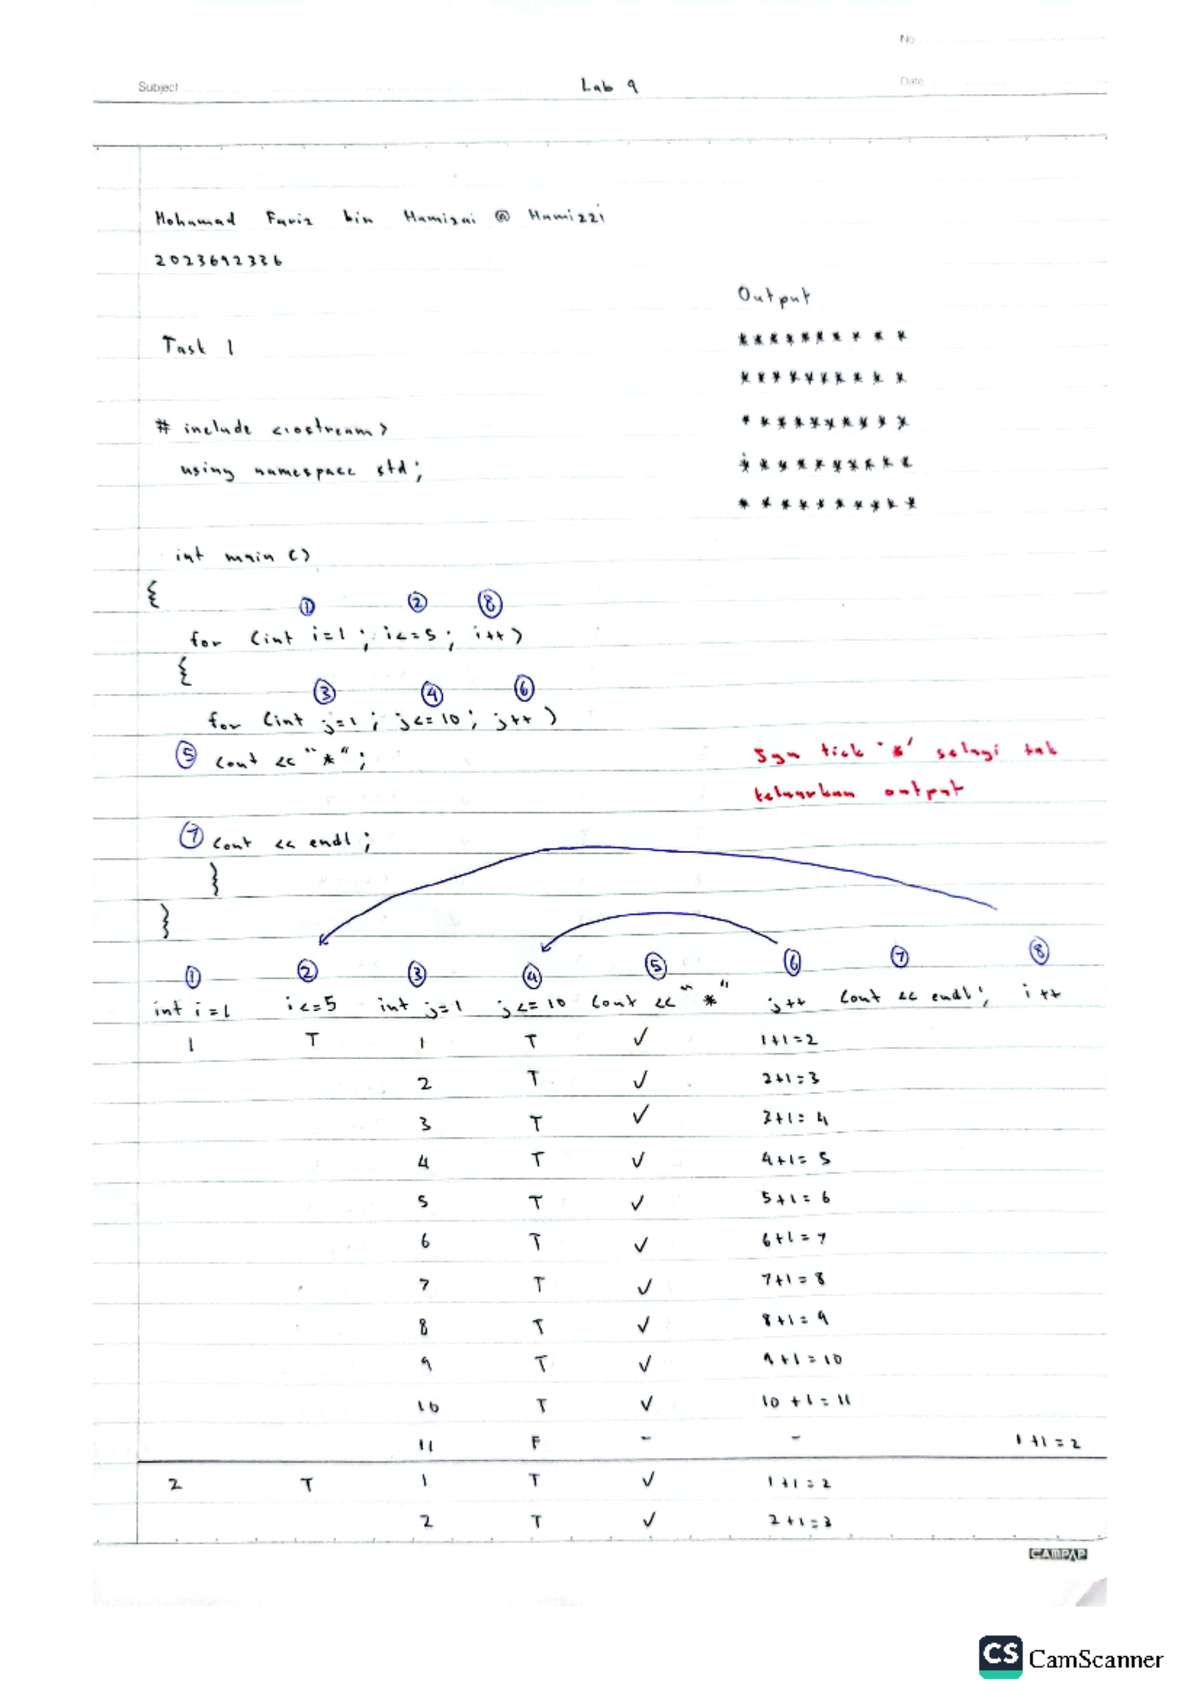 No.
Subject Lab 9 Date
Mohamad Fariz bin Hamizai @ Hamizzi
2023692336
Output
Task 1
* * * * * * * * * *
* * * * * * * * * *
# include <iostream>
* * * * * * * * * *
using namespace std;
* * * * * * * * * *
* * * * * * * * * *
int main ()
{
① ② ⑧
for (int i=1 ; i<=5 ; i++)
{
③ ④ ⑥
for (int j=1 ; j<=10 ; j++ )
⑤ cout << "*" ;
Jgn tick '*' selagi tak
keluarkan output
⑦ cout << endl ;
}
}
① ② ③ ④ ⑤ ⑥ ⑦ ⑧
int i=1 i<=5 int j=1 j<=10 cout << "*" j++ cout << endl; i++
1 T 1 T ✓ 1+1=2
2 T ✓ 2+1=3
3 T ✓ 3+1=4
4 T ✓ 4+1=5
5 T ✓ 5+1=6
6 T ✓ 6+1=7
7 T ✓ 7+1=8
8 T ✓ 8+1=9
9 T ✓ 9+1=10
10 T ✓ 10+1=11
11 F - - 1+1=2
2 T 1 T ✓ 1+1=2
2 T ✓ 2+1=3
CAMPAP
CS CamScanner